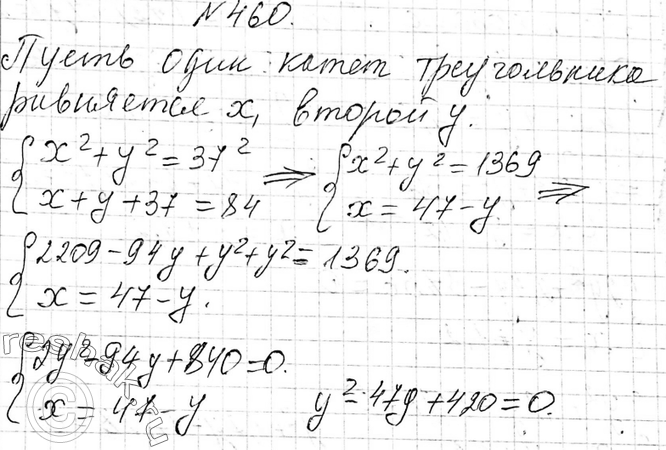 №460.
Пусть один катет треугольника
равняется x, второй y.
{ x² + y² = 37² ⇒ { x² + y² = 1369 ⇒
{ x + y + 37 = 84 { x = 47 - y
{ 2209 - 94y + y² + y² = 1369.
{ x = 47 - y.
{ 2y² - 94y + 840 = 0.
{ x = 47 - y y² - 47y + 420 = 0.